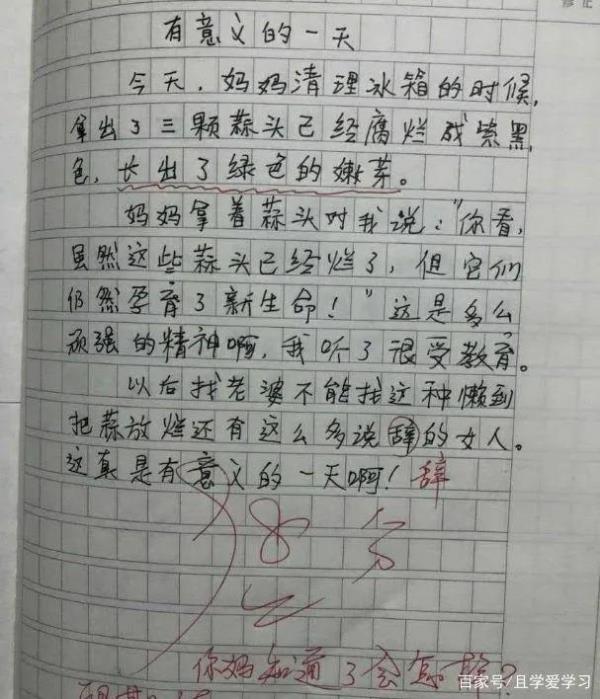 有意义的一天
今天,妈妈清理冰箱的时候,
拿出了三颗蒜头已经腐烂成紫黑
色,长出了绿色的嫩芽。
妈妈拿着蒜头对我说:"你看,
虽然这些蒜头已经烂了,但它们
仍然孕育了新生命!"这是多么
顽强的精神啊,我听了很受教育。
以后找老婆不能找这种懒到
把蒜放烂还有这么多说辞的女人。
这真是有意义的一天啊!辞
8分
你妈知道了会怎样?
百家号/且学爱学习